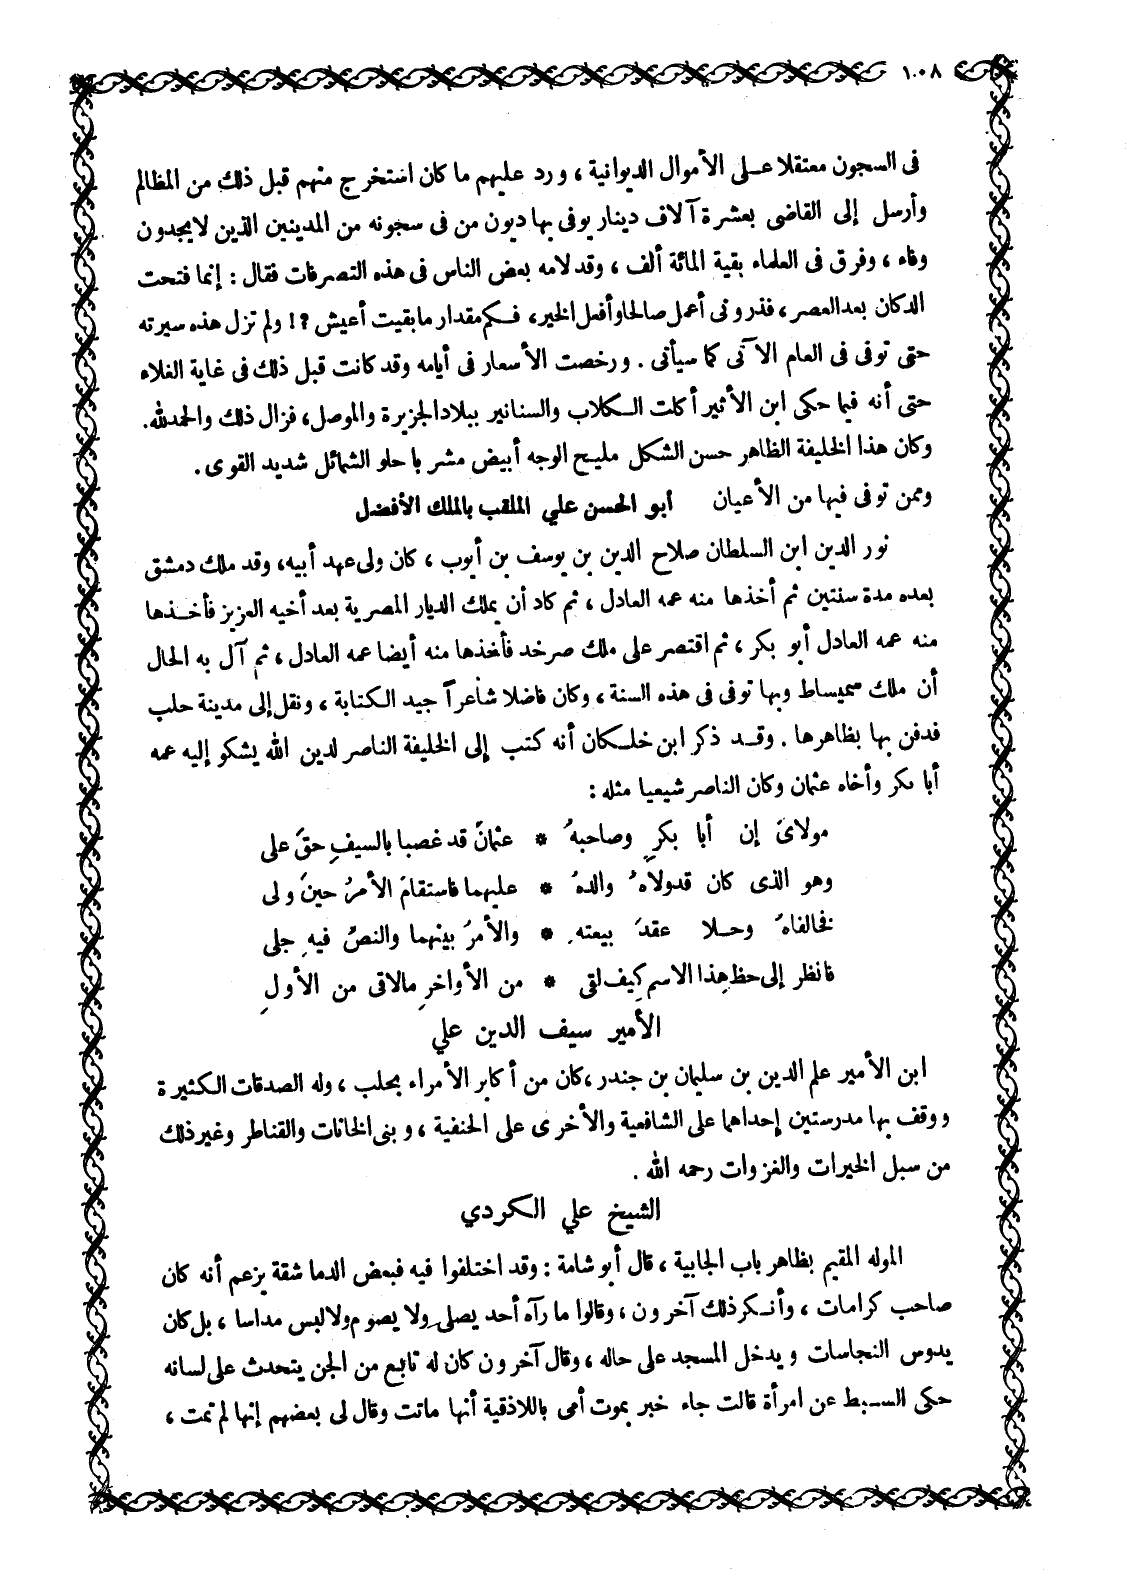 ١٠٠٨
فى السجون معتقلا على الأموال الديوانية ، ورد عليهم ما كان استخرج منهم قبل ذلك من المظالم
وأرسل إلى القاضى بعشرة آلاف دينار يوفى بها ديون من فى سجونه من المدينين الذين لايجدون
وفاء ، وفرق فى العلماء بقية المائة ألف ، وقد لامه بعض الناس فى هذه التصرفات فقال : إنما فتحت
الدكان بعد العصر ، فذرونى أعمل صالحا وأفعل الخير ، فكم مقدار مابقيت أعيش ?! ولم تزل هذه سيرته
حتى توفى فى العام الآتى كما سيأتى . ورخصت الأسعار فى أيامه وقد كانت قبل ذلك فى غاية الغلاء
حتى أنه فيما حكى ابن الأثير أكلت الكلاب والسنانير ببلاد الجزيرة والموصل ، فزال ذلك والحمد لله.
وكان هذا الخليفة الظاهر حسن الشكل مليح الوجه أبيض مشربا حلو الشمائل شديد القوى .
وممن توفى فيها من الأعيان أبو الحسن علي الملقب بالملك الأفضل
نور الدين ابن السلطان صلاح الدين بن يوسف بن أيوب ، كان ولى عهد أبيه، وقد ملك دمشق
بعده مدة سنتين ثم أخذها منه عمه العادل ، ثم كاد أن يملك الديار المصرية بعد أخيه العزيز فأخذها
منه عمه العادل أبو بكر ، ثم اقتصر على ملك صرخد فأخذها منه أيضا عمه العادل ، ثم آل به الحال
أن ملك سميساط وبها توفى فى هذه السنة ، وكان فاضلا شاعراً جيد الكتابة ، ونقل إلى مدينة حلب
فدفن بها بظاهرها . وقد ذكر ابن خلكان أنه كتب إلى الخليفة الناصر لدين الله يشكو إليه عمه
أبا بكر وأخاه عثمان وكان الناصر شيعيا مثله :
مولاىَ إن أبا بكرٍ وصاحبهُ * عثمانَ قد غصبا بالسيفِ حقَ على
وهو الذى كان قد ولاهُ والدهُ * عليهما فاستقامَ الأمرُ حينَ ولى
فخالفاهُ وحلا عقدَ بيعتهِ * والأمرُ بينهما والنصُ فيهِ جلى
فانظر إلى حظِ هذا الاسمِ كيف لقى * من الأواخرِ مالاقى من الأولِ
الأمير سيف الدين علي
ابن الأمير علم الدين بن سليمان بن جندر ، كان من أكابر الأمراء بحلب ، وله الصدقات الكثيرة
ووقف بها مدرستين إحداهما على الشافعية والأخرى على الحنفية ، وبنى الخانات والقناطر وغير ذلك
من سبل الخيرات والغزوات رحمه الله .
الشيخ علي الكردي
الموله المقيم بظاهر باب الجابية ، قال أبو شامة : وقد اختلفوا فيه فبعض الدماشقة يزعم أنه كان
صاحب كرامات ، وأنكر ذلك آخرون ، وقالوا ما رآه أحد يصلى ولا يصوم ولا لبس مداسا ، بل كان
يدوس النجاسات ويدخل المسجد على حاله ، وقال آخرون كان له تابع من الجن يتحدث على لسانه
حكى السبط عن امرأة قالت جاء خبر بموت أمى باللاذقية أنها ماتت وقال لى بعضهم إنها لم تمت ،